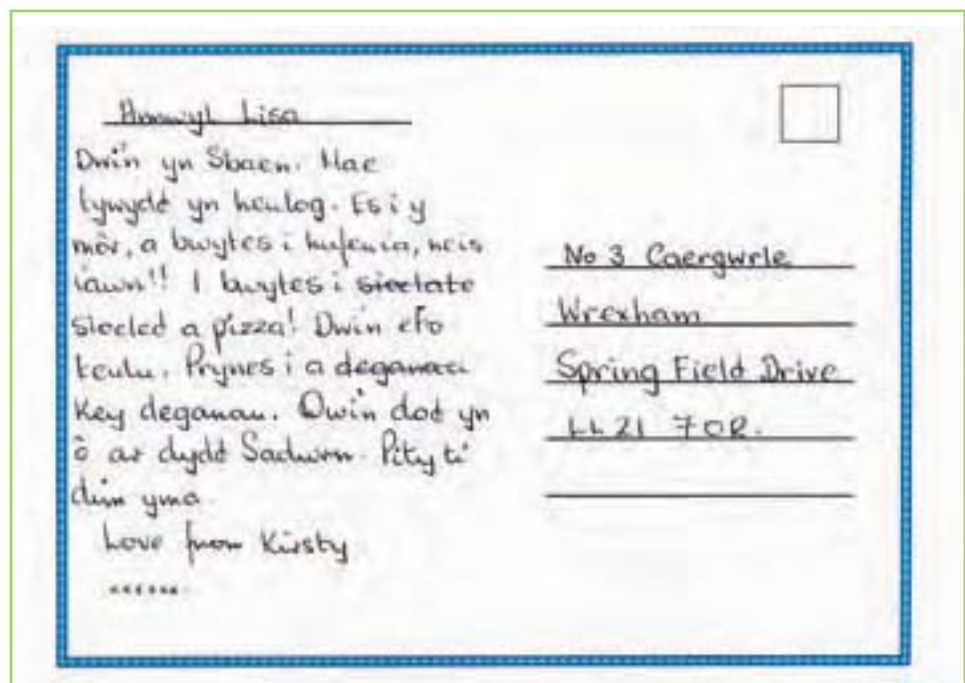 Annwyl Lisa
Dwi'n yn Sbaen. Mae
tywydd yn heulog. Es i y
môr, a bwytes i hufenia, neis
iawn!! I bwytes i sioclate
siocled a pizza! Dwi'n efo
teulu. Prynes i a deganaci
Key deganau. Dwi'n dod yn
ô ar dydd Sadwrn. Pity ti
dim yma
Love from Kirsty
xxxxxx
No 3 Caergwrle
Wrexham
Spring Field Drive
LL21 7OR.